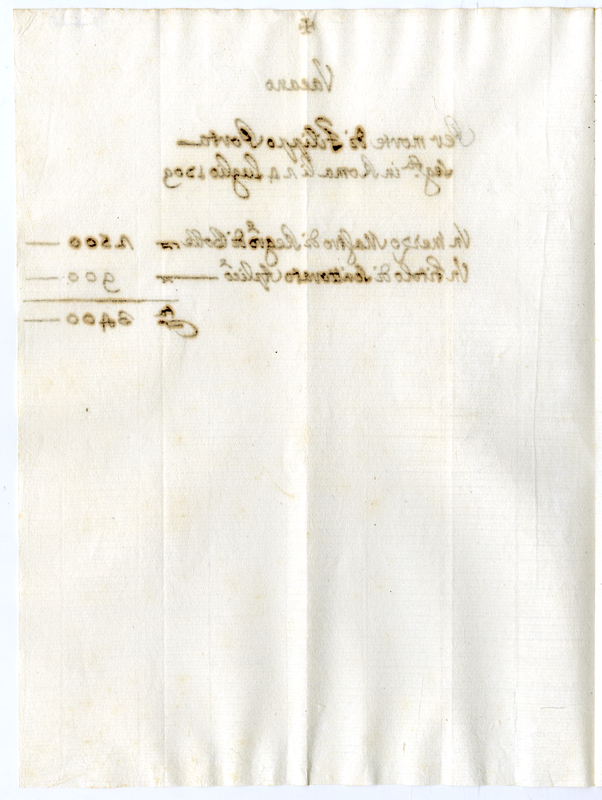 ✠
Vacano
Per morte di Filippo Porta
seg.ta in Roma li 24 Luglio 1709
Un mezzo di Reg.ro di Bolle 2500
Un Scrittorato Aplico 900
3400